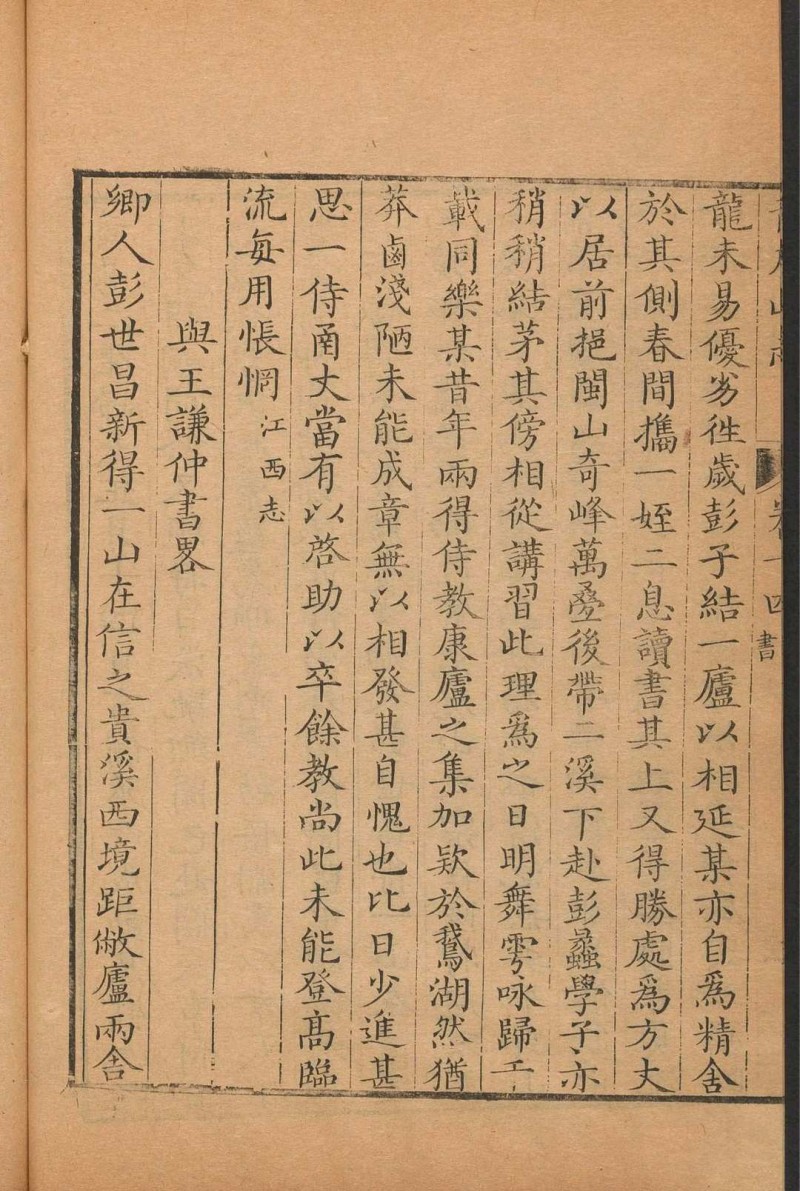 卷十四 書
龍未易優劣徃歲彭子結一廬以相延某亦自爲精舍
於其側春間攜一姪二息讀書其上又得勝處爲方丈
以居前挹閩山奇峰萬疊後帶二溪下赴彭蠡學子亦
稍稍結茅其傍相從講習此理爲之日明舞雩咏歸千
載同樂某昔年兩得侍教康廬之集加欵於鵝湖然猶
莽鹵淺陋未能成章無以相發甚自愧也比日少進甚
思一侍函丈當有以啓助以卒餘教尚此未能登高臨
流每用悵惘 江西志
與王謙仲書畧
鄉人彭世昌新得一山在信之貴溪西境距敝廬兩舍